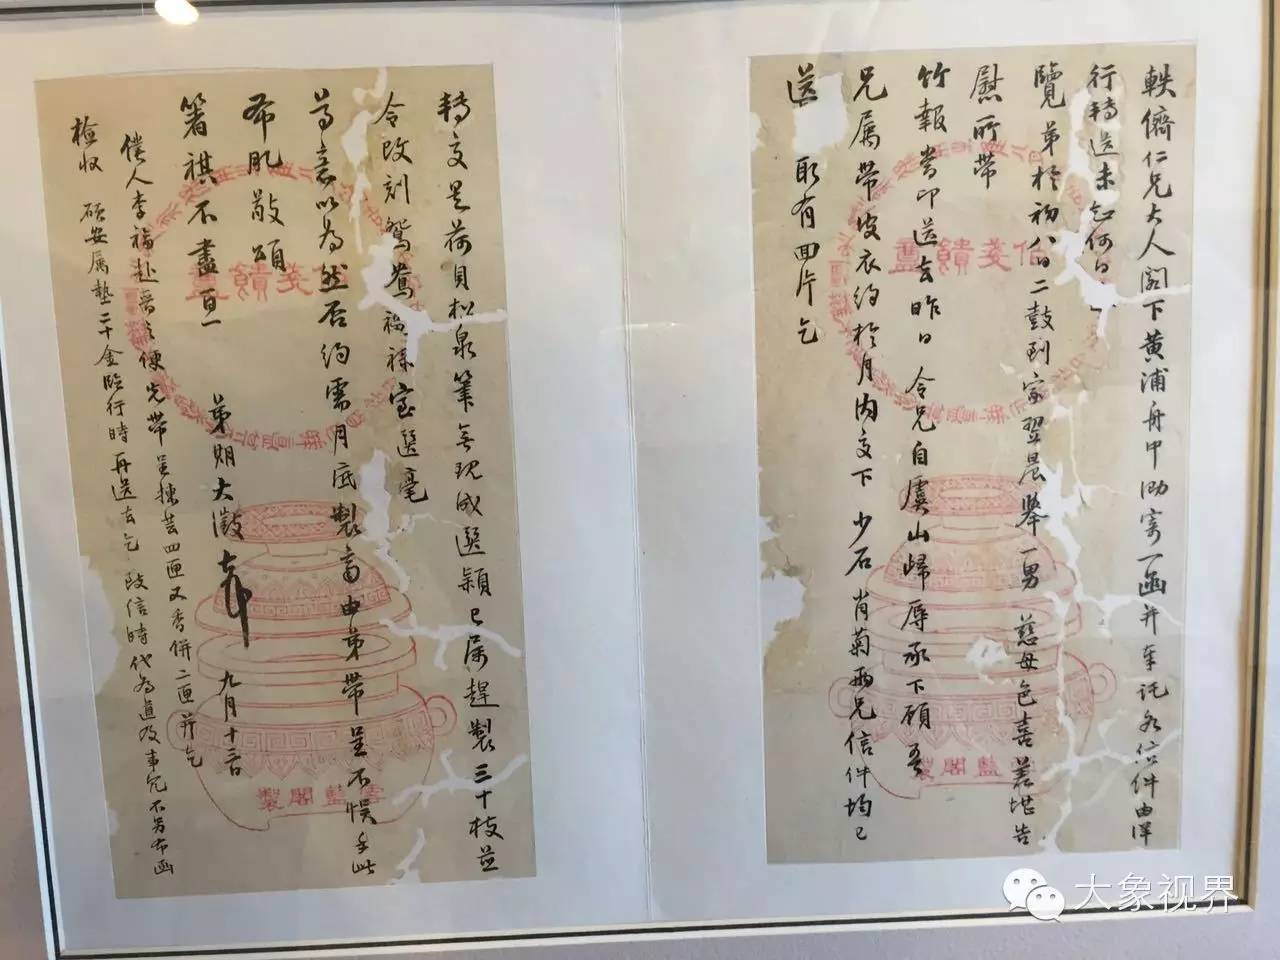 軼儕仁兄大人閣下黃浦舟中泐寄一函并奉託各信件由洋
行轉送未知何日
覽弟於初八日二鼓到家翌晨舉一男慈母色喜差堪告
慰所帶
竹報當即送去昨日令兄自虞山歸辱承下顧
兄屬帶皮衣約於月內交下少石肖菊兩兄信件均已
送取有回片乞
轉交是荷貝松泉筆無現成選穎已屬趕製三十枝並
令改刻鴛鴦福祿室選毫
為然否約需月底製齊由弟帶呈不悮手此
布肊敬頌
箸祺不盡百一
弟期大澂 九月十三日
僕人李福赴晉之便先帶呈 四匣又香餅二匣并乞
檢收 碩安屬墊二十金臨行時再送去乞 信時代為道及 不另布函
伯羲饋盦
雲藍閣製
大象视界